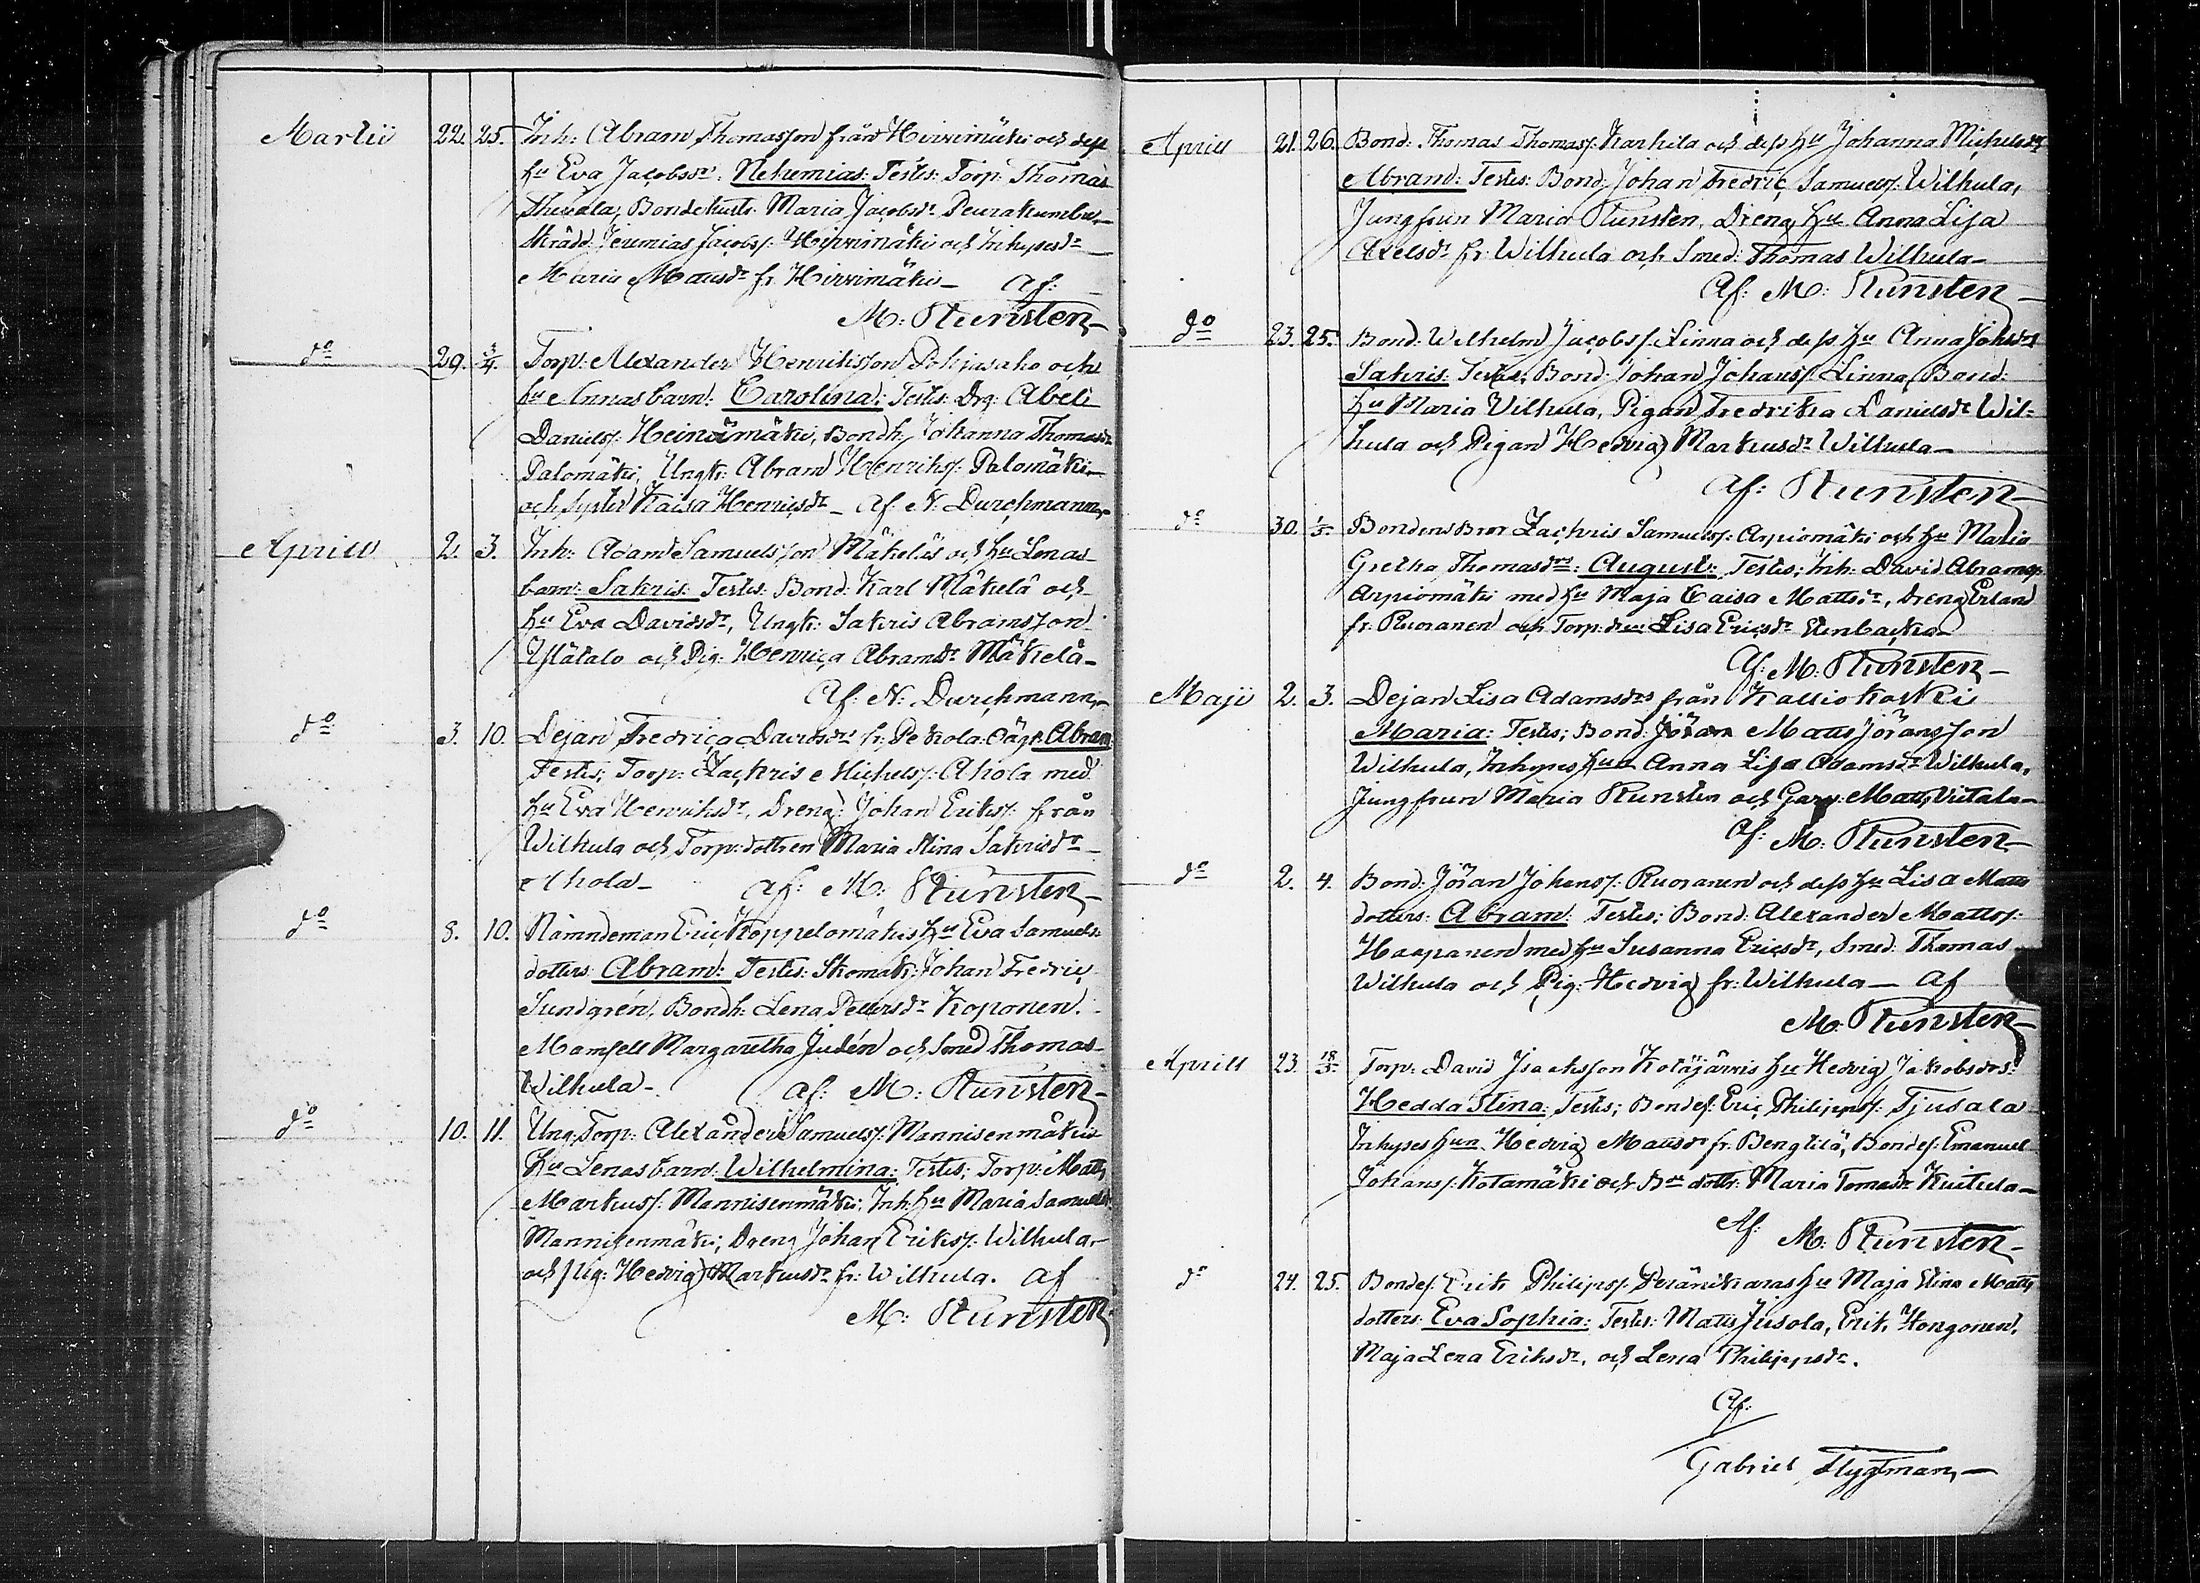 Martii 22. 25. Inh: Abram Thomasson från Hirvimäki och dess
hu Eva Jacobsdr: Nehemias: Testes: Torp: Thomas
Bondehustr. Maria Jacobsdr Peurakumbu,
Skrädd: Jeremias Jacobs: Hirvimäki och Inhysesdr
Maria Mattsdr fr. Hirvimäki — Af:
M: Runsten
do 29. 3/4. Torp: Alexander Henriksson Pohjasaho och
hu Annas barn: Carolina: Testes: Drg: Abel
Daniels: Heinämäki, Bondh. Johanna Thomasdr
Palomäki, Ungk: Abram Henriks: Palomäki
och syster Kaisa Henricsdr — Af N: Durchman
Aprill 2. 3. Inh: Adam Samuelsson Mäkeläs och hu Lenas
barn: Sakris: Testes: Bond: Karl Mäkelä och
hu Eva Davidsdr, Ungk: Sakris Abramsson
Ylätalo och Pig: Henrica Abramsdr Mäkelä
Af: N: Durchmann
do 3. 10. Dejan Fredrica Davidsdrs fr: Pekola: Oägt: Abram
Testes; Torp: Zachris Michels: Ahola med
hu Eva Henriksdr, Dreng: Johan Eriks: från
Wilhula och Torp:dottren Maria Stina Sakrisdr
Ahola — af: M: Runsten
do 8. 10. Nämndeman Eric Koppelomäkis hu Eva Samuels
dotters: Abram: Testes: Skomak: Johan Fredric
Sundgrén, Bondh: Lena Pettersdr Koponen.
Mamsell Margaretha Judén och Smed Thomas
Wilhula — af: M: Runsten
do 10. 11. Ung Torp: Alexander Samuels: Mannisenmäkis
hu Lenas barn: Wilhelmina: Testes; Torp: Matts
Markus: Mannisenmäki; Inh: hu Maria Samuelsdr
Mannisenmäki; Dreng Johan Eriks: Wilhula
och Pig: Hedvig Markusdr fr: Wilhula. Af
M: Runsten
Aprill 21. 26. Bond: Thomas Thomas: Karhila och dess hu Johanna Michelsdr
Abram: Testes: Bond: Johan Fredric Samuels: Wilhula,
Jungfrun Maria Runsten, Dreng hu Anna Lisa
Axelsdr fr: Wilhula och Smed: Thomas Wilhula —
Af: M: Runsten
do 23. 25. Bond: Wilhelm Jacobs: Linna och dess hu Anna Johsdrs
Sakris: Testes; Bond: Johan Johans: Linna, Bond:
hu Maria Vilhula, Pigan Fredrika Danielsdr Wil=
hula och Pigan Hedvig Markusdr Wilhula —
Af: Runsten
do 30. 1/5. Bondens Bror Zachris Samuels: Arpiomäki och hu Maria
Gretha Thomasdrs: August: Testes; Inh: David Abrams:
Arpiomäki med hu Maja Caisa Mattsdr, Dreng Erland
fr. Ruoranen och Torp. Lisa Ericsdr Stenbacka
Af: M: Runsten
Maji 2. 3. Dejan Lisa Adamsdrs från Kalliokoski
Maria: Testes; Bond: Matts Jöransson
Wilhula, Inhyses hun Anna Lisa Adamsdr Wilhula,
Jungfrun Maria Runsten och Garv: Matts Viitala
Af: M: Runsten
do 2. 4. Bond: Jöran Johans: Ruoranen och dess hu Lisa Matts
dotters: Abram: Testes; Bond: Alexander Matts:
Haapanen med hu Susanna Ericsdr, Smed: Thomas
Wilhula och Pig: Hedvig fr: Wilhula — Af
M: Runsten
Aprill 23. 18/5. Torp: David Isacksson Kotajärvis hu Hedvig Jakobsdrs:
Hedda Stina: Testes; Bondes: Eric Philipps: Tjusala
Inhyses hun Hedvig Mattsdr fr: Bengtilä, Bondes: Emanuel
Johans: Kotamäki och Bdr dottr: Maria Tomasdr Kuitula
Af: M: Runsten
do 24. 25. Bondes: Erik Philips: Peränikaras hu Maja Stina Matts
dotters Eva Sophia: Testes: Matts Jusola, Erik Kongonen,
Maja Lena Eriksdr, och Lena Philippsdr.
Af:
Gabriel Flygtman